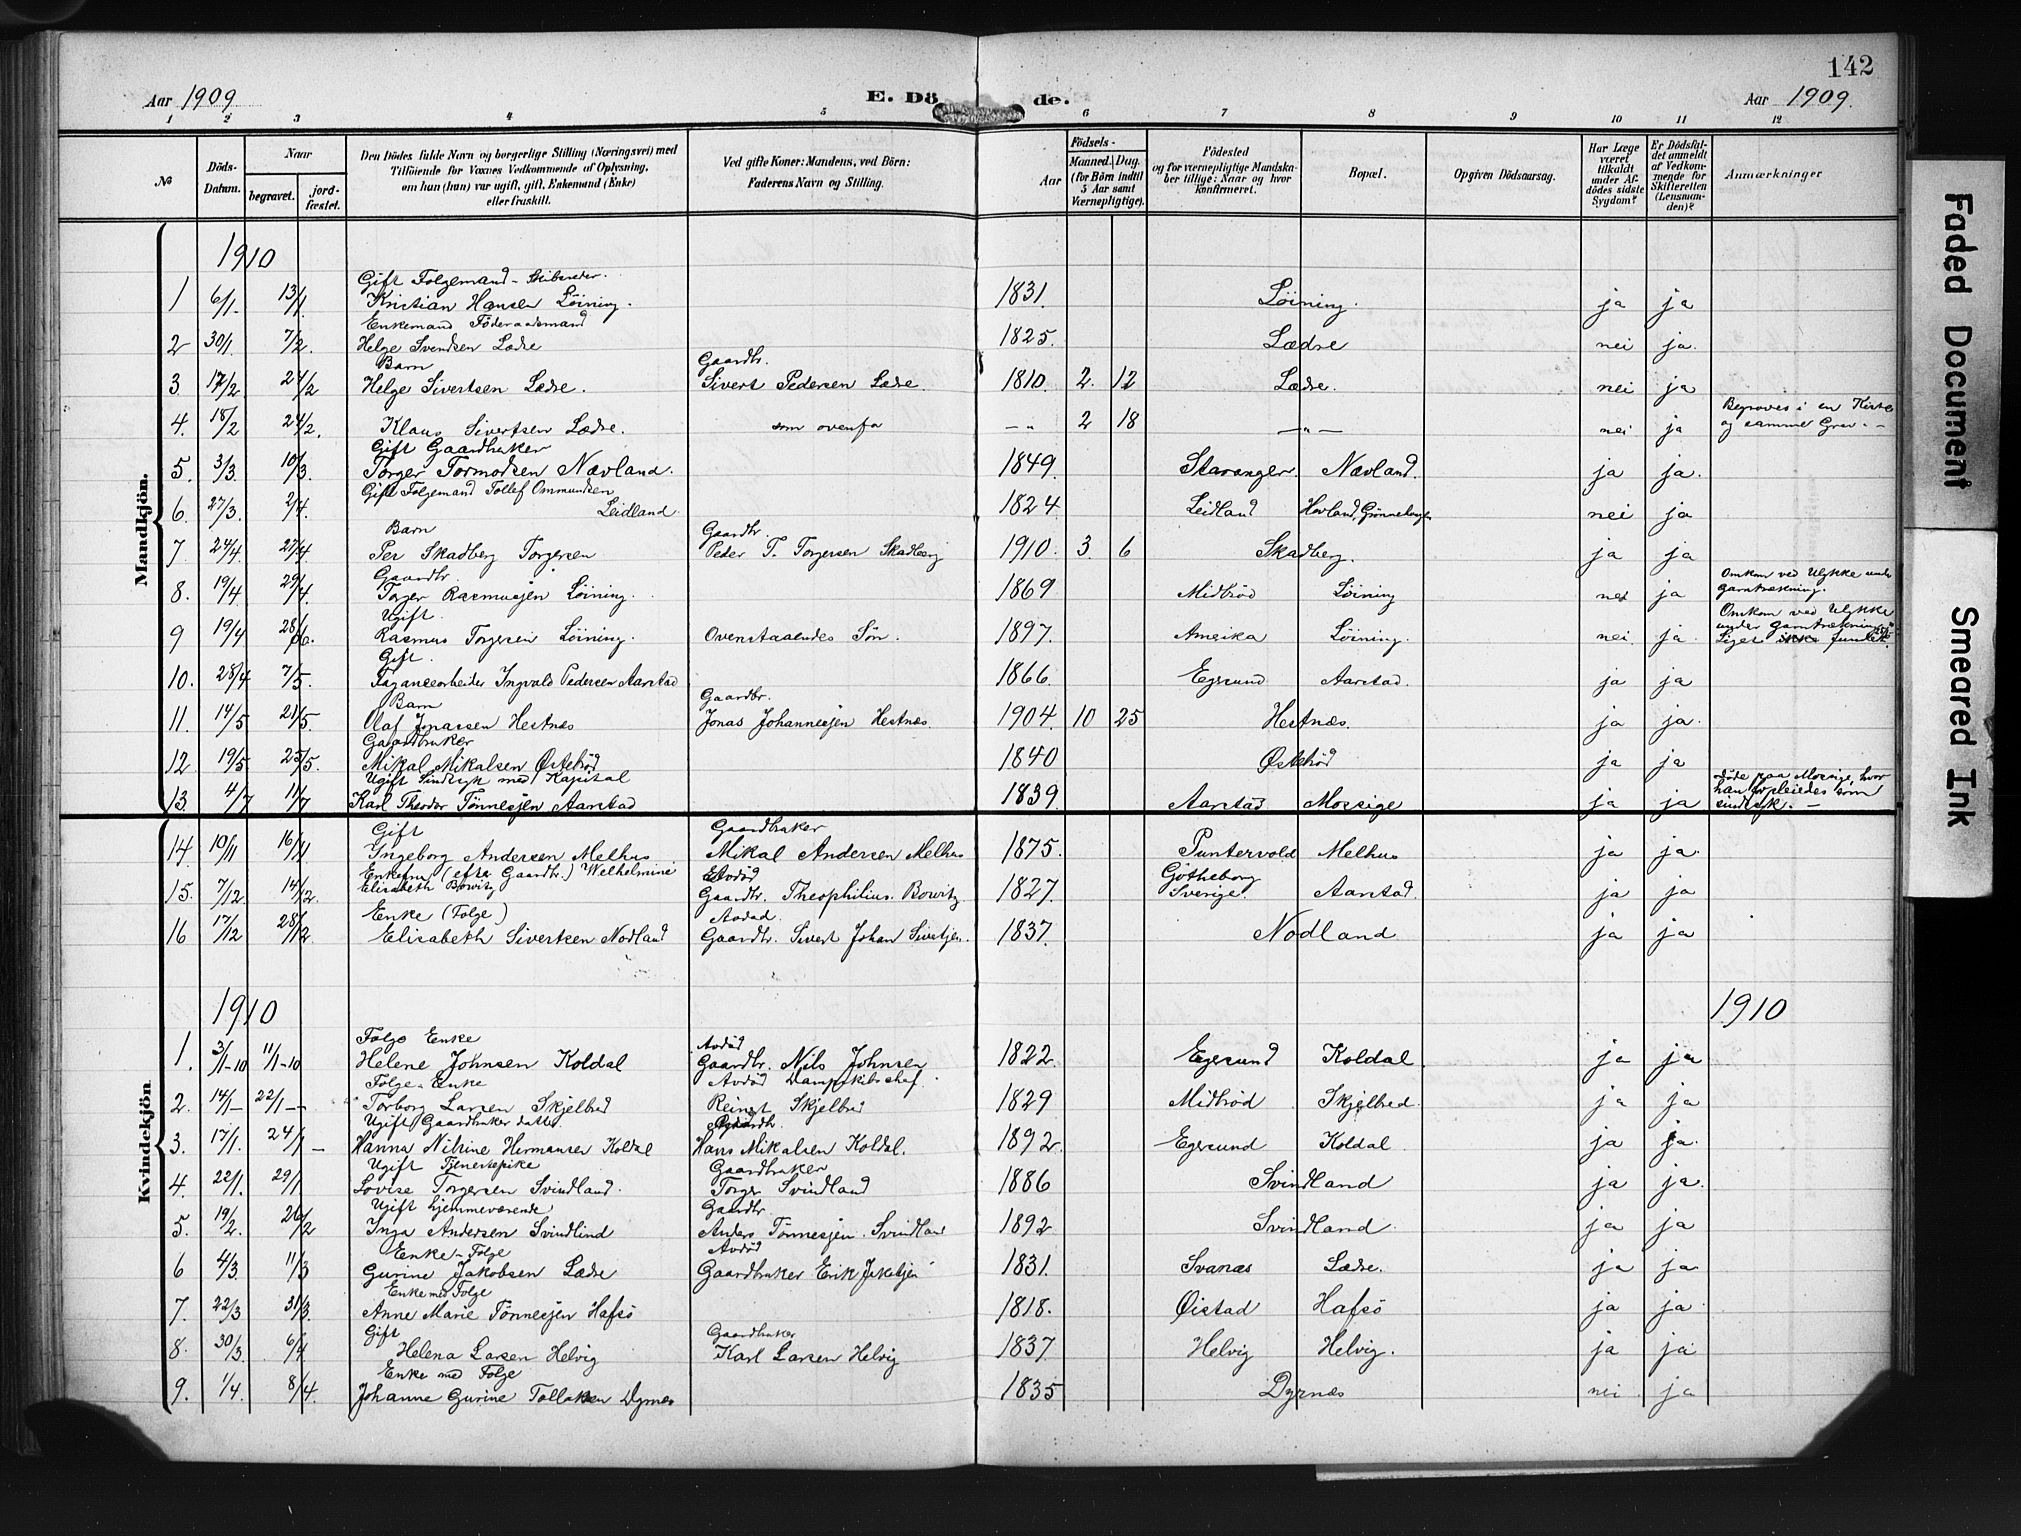 142
Aar 1909
E. Dö de.
Aar 1909.
1 2 3 4 5 6 7 8 9 10 11 12
№
Döds-Datum.
Naar
begravet.
jord-fæstet.
Den Dödes fulde Navn og borgerlige Stilling (Næringsvei) med Tilföiende for Voxnes Vedkommende af Oplysning, om han (hun) var ugift, gift, Enkemand (Enke) eller fraskilt.
Ved gifte Koner: Mandens, ved Börn: Faderens Navn og Stilling.
Födsels-
Aar
Maaned. Dag.
(for Börn indtil 5 Aar samt Værnepligtige).
Födested og for værnepligtige Mandskaber tillige: Naar og hvor konfirmeret.
Bopæl.
Opgiven Dödsaarsag.
Har Læge været tilkaldt under Afdödes sidste Sygdom?
Er Dödsfaldet anmeldt af Vedkommende for Skifteretten (Lensmanden)?
Anmærkninger
Mandkjön.
1910
Gift Folgemand - Skibsreder.
1 6/1. 13/1 Kristian Hansen Löining. 1831. Löining. ja ja
Enkemand Föderaadsmand
2 30/1. 7/2. Helge Svendsen Lædre 1825. Lædre nei ja.
Barn Gaardbr.
3 17/2 24/2 Helge Sivertsen Lædre. Sivert Pedersen Lædre 1810. 2. 12 Lædre. nei ja
4. 18/2 24/2. Klaus Sivertsen Lædre. som ovenfor - " 2 18 — " — nei ja Begraves i en Kiste og samme Grav. -
Gift Gaardbruker
5. 3/3. 10/3. Torger Tormodsen Nævland. 1849. Stavanger. Nævland. ja ja.
Gift Folgemand Tollef Ommundsen
6. 27/3. 2/4. Leidland 1824 Leidland Hovland, nei ja
Barn Gaardbr.
7 24/4. 27/4 Per Skadberg Torgersen Peder T. Torgersen Skadberg 1910. 3. 6 Skadberg. ja ja
Gaardbr.
8. 19/4 29/4. Torger Rasmusjen Löining. 1869 Midbröd Löining nei ja Omkom ved Ulykke under Garntrækning.
Ugift.
9 19/4 28/6. Rasmus Torgersen Löining. Ovenstaaendes Sön. 1897. Ameika Löining. nei ja Omkom ved Ulykke under garntrækning. Liget ikke funded.
Gift.
10. 28/4 7/5. Fajancearbeider Ingvald Pedersen Aarstad 1866. Egersund Aarstad. ja ja
Barn Gaardbr.
11. 14/5 21/5. Olaf Jonassen Hestnæs Jonas Johannesjen Hestnæs. 1904. 10 25 Hestnæs. ja ja.
Gaardbruker
12 19/5. 25/5. Mikal Mikalsen Østebröd 1840 Østebröd ja ja
Ugift Sindsyk med Kapital
13. 4/7 11/7 Karl Theodor Tönnesjen Aarstad 1839. Aarstad Mossige ja ja döde paa Mossige, hvor han forpleiedes som sindsyk. -
Kvindekjön
Gift Gaardbruker
14. 10/11 16/11 Ingeborg Andersen Melhus Mikal Andersen Melhus 1875. Puntervold Melhus ja ja.
Enkefru (efter Gaardbr.) Welhelmine Avdöd Götheborg
15. 7/12 14/12. Elisabeth Bowitz Gaardbr. Theophilius Bowitz. 1827. Sverige. Aarstad. ja ja
Enke (Folge) Avdöd.
16 17/12 28/12 Elisabeth Sivertsen Nodland Gaardbr. Sivert Johan Sivertjen. 1837. Nodland ja ja
1910 1910
Folge Enke Avdöd
1. 3/1-10 11/1-10 Helene Johnsen Koldal Gaardbr. Nils Johnsen 1822. Egersund Koldal. ja ja
Folge-Enke Avdöd Dampskibschef.
2. 14/1- 22/1-- Torborg Larsen Skjelbred Reinert Skjelbred 1829 Midbröd Skjelbred. ja ja
Ugift Gaardbruker datter Gaardbr.
3. 17/1. 24/1 - Hanna Nilsine Hermansen Koldal Hans Mikalsen Koldal. 1892. Egersund Koldal. ja ja.
Ugift Tjenestepike Gaardbruker
4. 22/1. 29/1 Lovise Torgersen Svindland. Torger Svindland 1886 Svindland ja ja.
Ugift hjemmeværende Gaardbr.
5. 19/2. 26/2 Inga Andersen Svindlind Anders Tönnesjen. Svindland 1892 Svindland. ja ja
Enke - Folge Avdöd
6 4/3. 11/3 Gurine Jakobsen Lædre Gaardbruker Erik Jakobjen 1831. Svanæs Lædre. ja ja.
Enke med Folge
7. 22/3 31/3. Anne Marie Tönnesjen Hafsö 1818. Øistad Hafsö ja ja.
Gift Gaardbruker
8. 30/3. 6/4 Helena Larsen Helvig Karl Larsen Helvig 1837 Helvig Helvig. ja ja.
Enke med Folge
9. 1/4. 8/4. Johanne Gurine Tollaksen Dyrnes 1835 Dyrnæs nei. ja
Faded Document
Smeared Ink